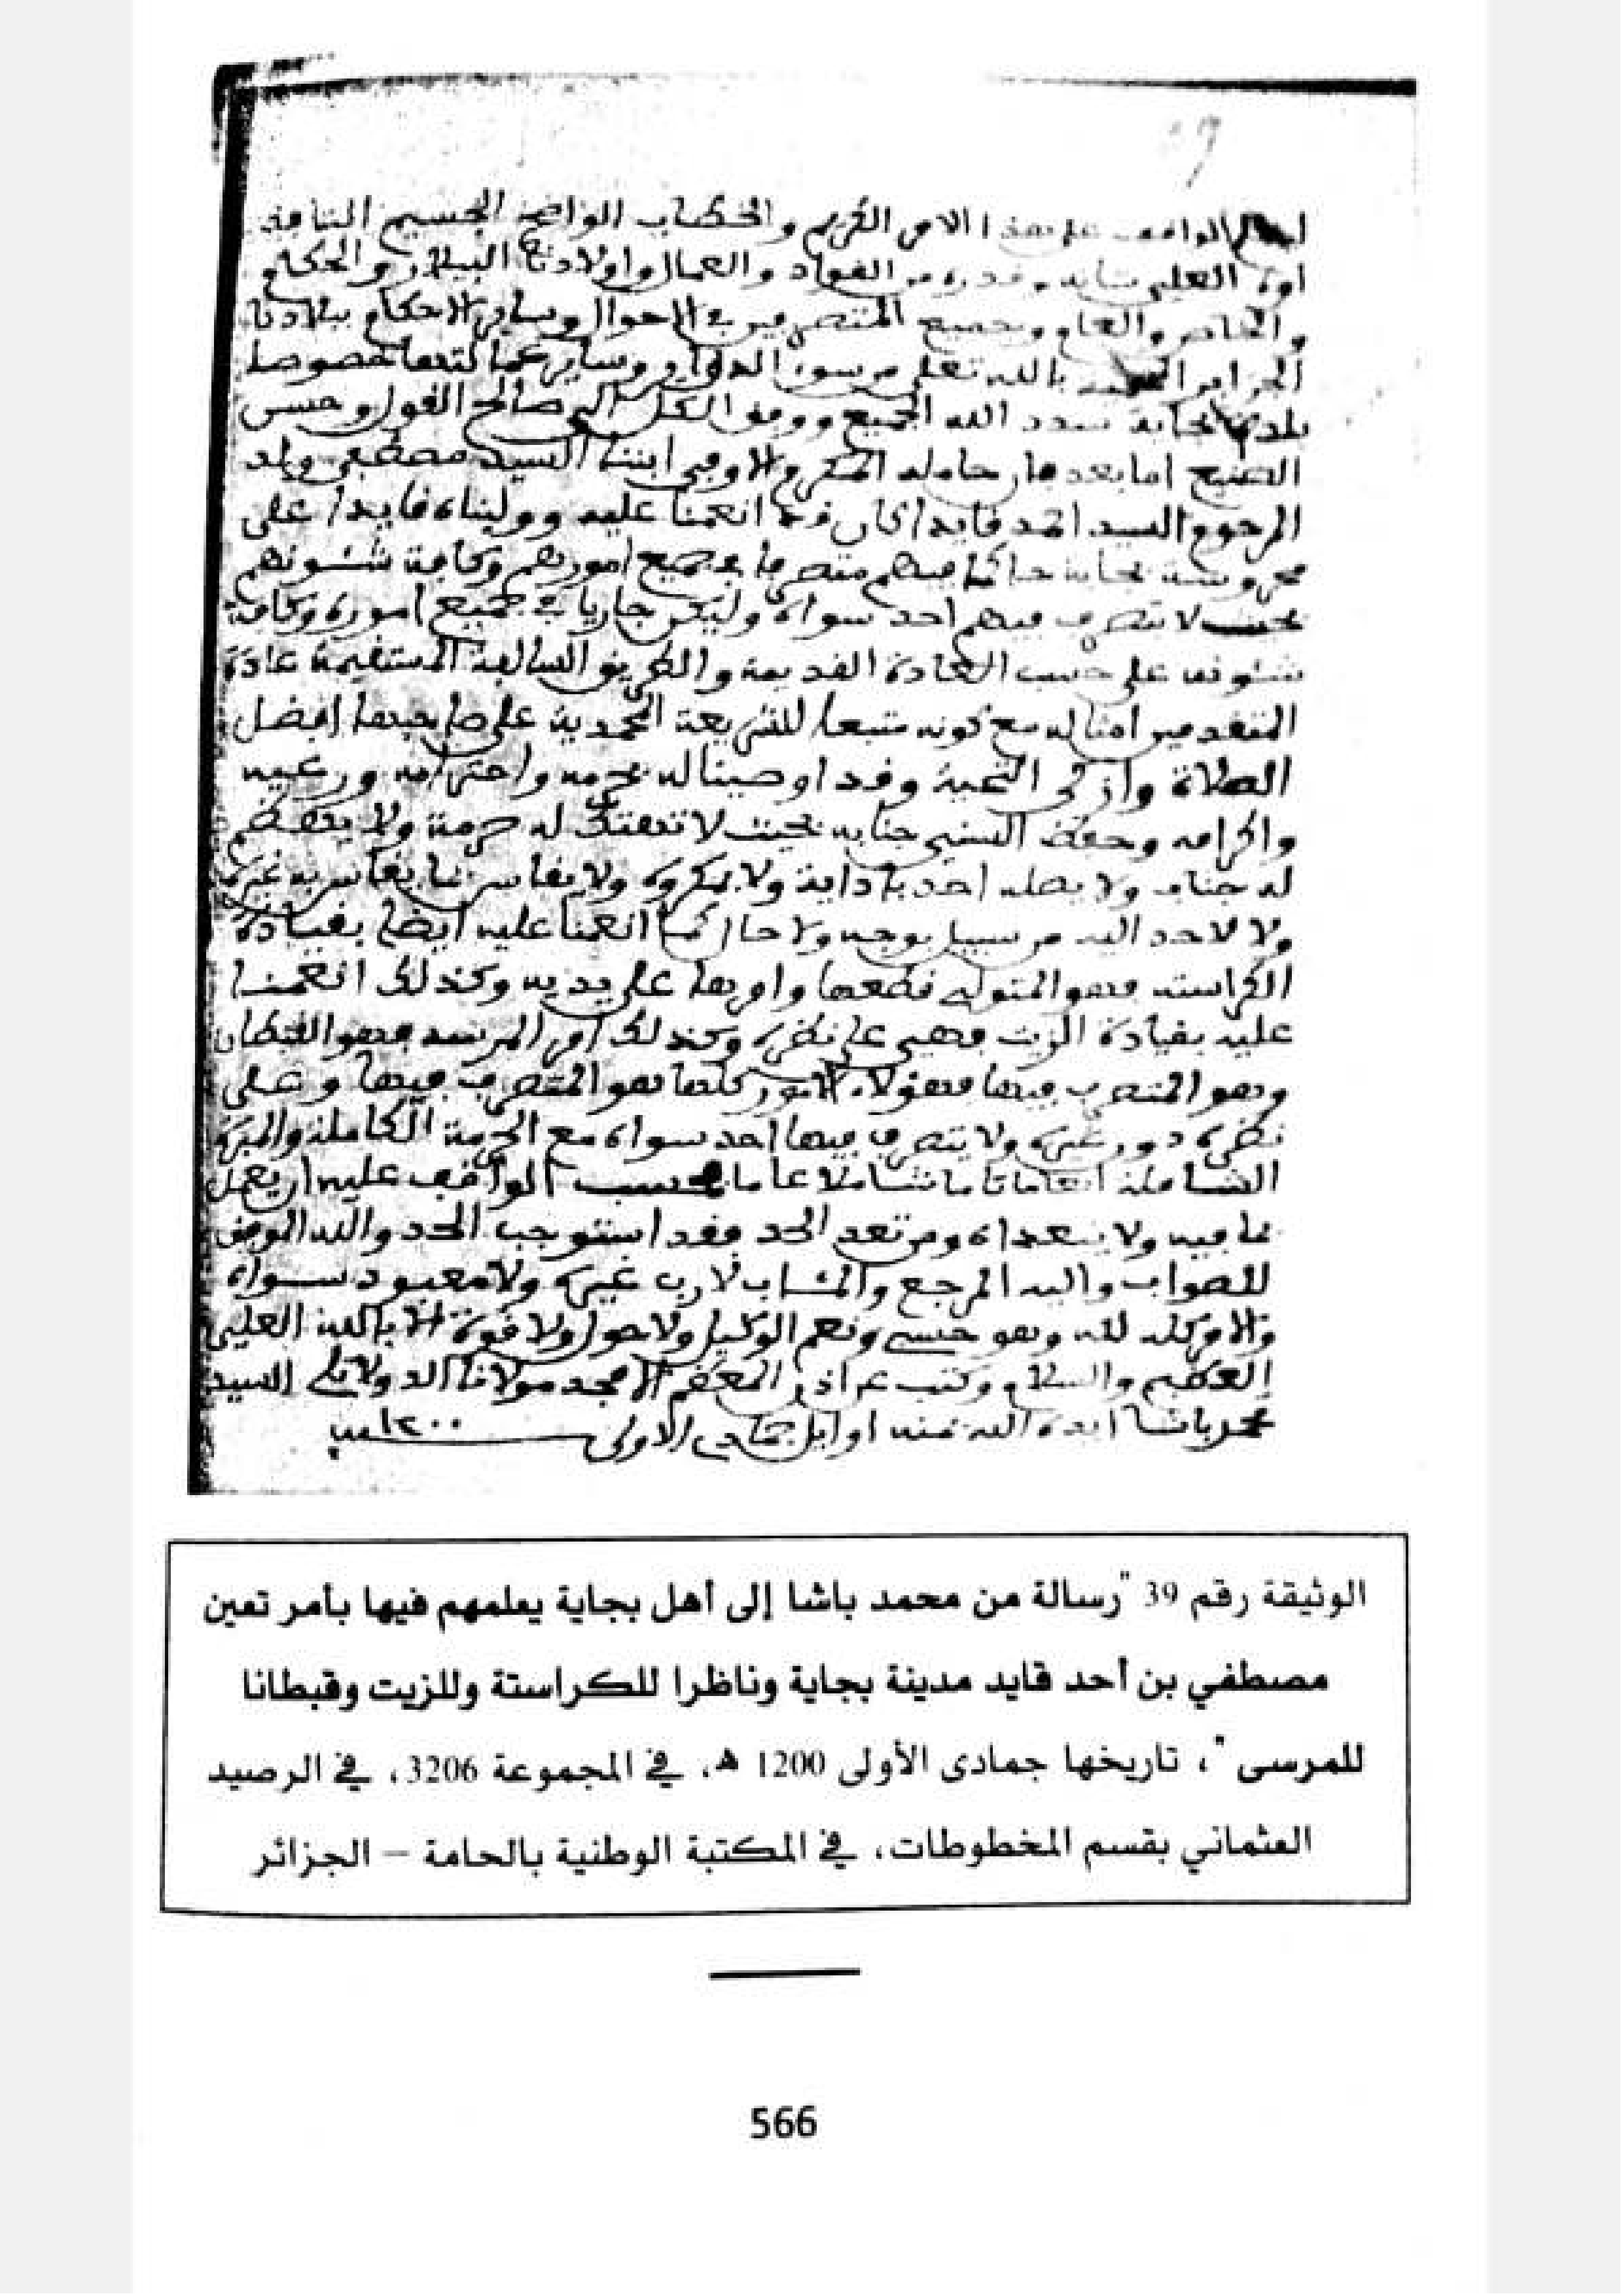 الواقف على هذا الامر الكريم والخطاب الواضح الجسيم النافذ
امره العلي شانه وقدره من القواد والعمال واولادنا البيلار والحكام
والخاص والعام وجميع المتصرفين في الاحوال وساير الاحكام ببلادنا
الجزاير بالله تعلى من سوء الدواير وساير عمالتها خصوصا
بلدة بجاية سدد الله الجميع ووفق الكل الى صالح القول وحسن
الصنيع اما بعد فان حامله المكرم الاوجى ابننا السيد مصطفى ولد
المرحوم السيد احمد قايد كان قد انعمنا عليه ووليناه قايدا على
محروسة بجاية حاكما فيهم متصرفا في جميع امورهم وكافة شئونهم
بحيث لا يتصرف فيهم احد سواه وليكن جاريا في جميع اموره وكافة
شئونه على حسب العادة القديمة والطريق السالفة المستقيمة عادة
المتقدمين امثاله مع كونه متبعا للشريعة المحمدية على صاحبها افضل
الصلاة وازكى التحية وقد اوصينا له بحرمه واحترامه ورعيه
واكرامه وحفظ السني جنابه بحيث لا تهتك له حرمة ولا يهضم
له جناب ولا يصله احد باذاية ولا بمكروه ولا يقاس بما يقاس به غيره
ولا لاحد اليه من سبيل بوجه ولا حال كما انعمنا عليه ايضا بقيادة
الكراسته فهو المتولي قطعها وامرها على يديه وكذلك انعمنا
عليه بقيادة الزيت فهي على نظره وكذلك امر المرسه فهو القبطان
وهو المتصرف فيها فهؤلاء الامور كلها هو المتصرف فيها وعلى
نظره دون غيره ولا يتصرف فيها احد سواه مع الحرمة الكاملة والمبرة
الشاملة انعاما تاما شاملا عاما فحسب الواقف عليه ان يعمل
بما فيه ولا يتعداه ومن تعد الحد فقد استوجب الحد والله الموفق
للصواب واليه المرجع والمئاب لا رب غيره ولا معبود سواه
والامر كله لله وهو حسبي ونعم الوكيل ولا حول ولا قوة الا بالله العلي
العظيم والسلام وكتب عن اذن المعظم الامجد مولانا الدولاتلي السيد
محمد باشا ايده الله بمنه اوايل جمادى الاولى سنة ١٢٠٠
الوثيقة رقم 39 "رسالة من محمد باشا إلى أهل بجاية يعلمهم فيها بأمر تعين
مصطفي بن أحد قايد مدينة بجاية وناظرا للكراستة وللزيت وقبطانا
للمرسى"، تاريخها جمادى الأولى 1200 هـ، في المجموعة 3206، في الرصيد
العثماني بقسم المخطوطات، في المكتبة الوطنية بالحامة – الجزائر
566